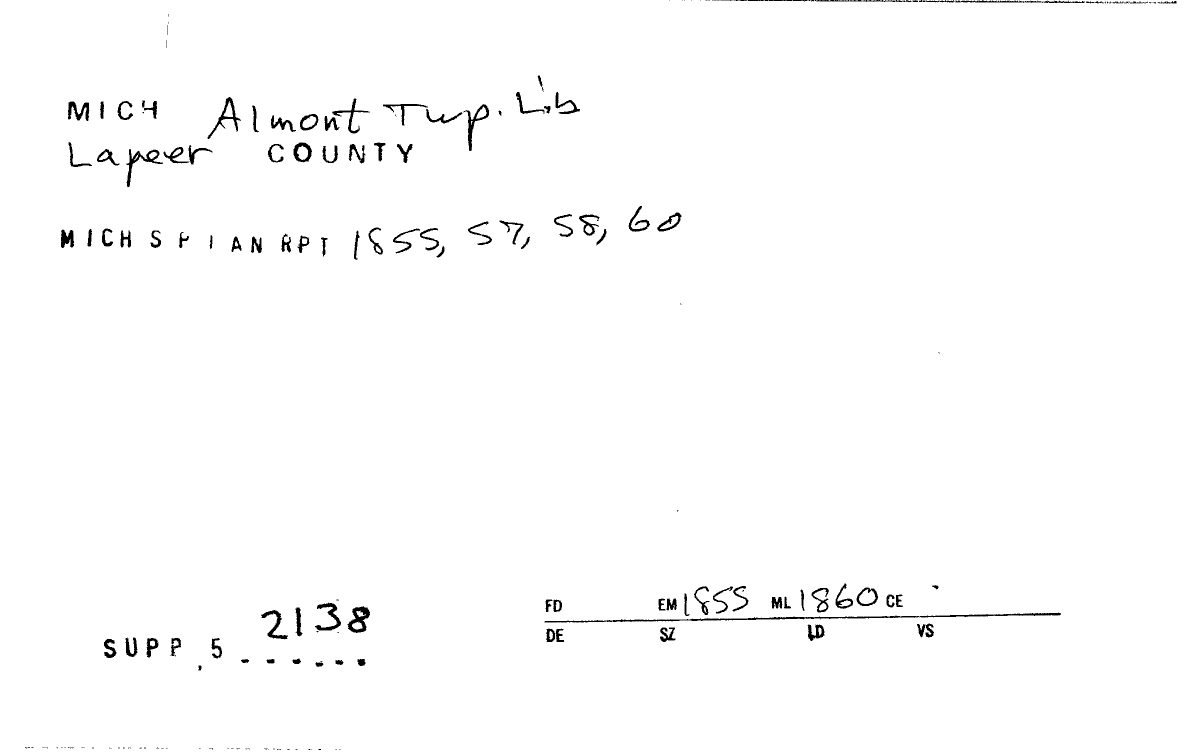 MICH Almont Twp. Lib
Lapeer COUNTY
MICH S P I AN RPT 1855, 57, 58, 60
2138
SUPP. 5 ......
FD EM 1855 ML 1860 CE
DE SZ LD VS